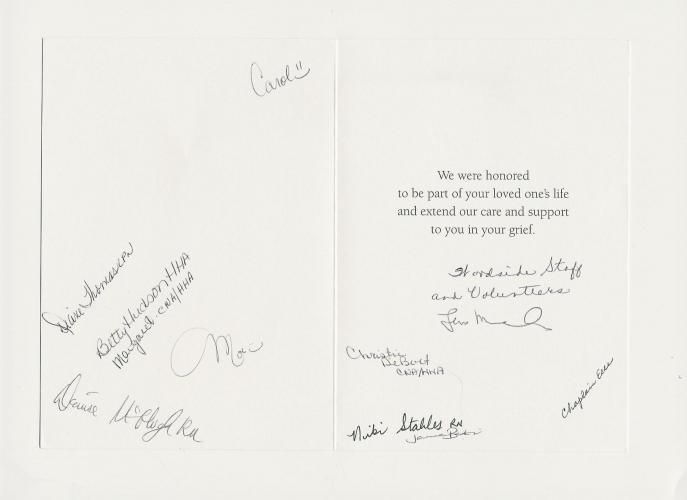 Carol
Diane Thomas RN
Betty Hudson HHA
Margaret - CNA/HHA
Denise McHugh RN
We were honored
to be part of your loved one's life
and extend our care and support
to you in your grief.
Woodside Staff
and Volunteers
Christie
DeBolt
CNA/HHA
Chaplain
Niki Stahles RN